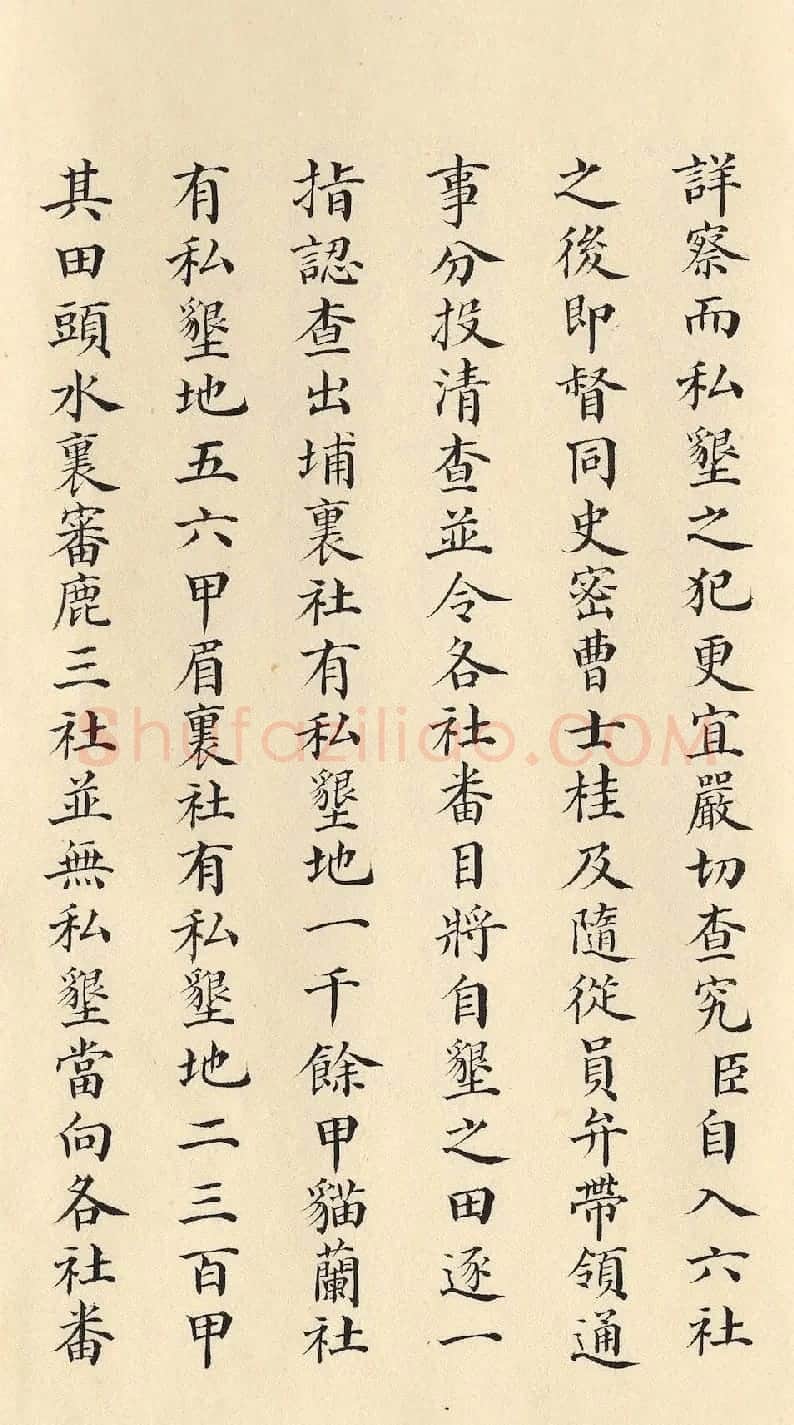 詳察而私墾之犯更宜嚴切查究臣自入六社
之後即督同史密曹士桂及隨從員弁帶領通
事分投清查並令各社番目將自墾之田逐一
指認查出埔裏社有私墾地一千餘甲貓蘭社
有私墾地五六甲眉裏社有私墾地二三百甲
其田頭水裏審鹿三社並無私墾當向各社番
Shufaziliao.COM